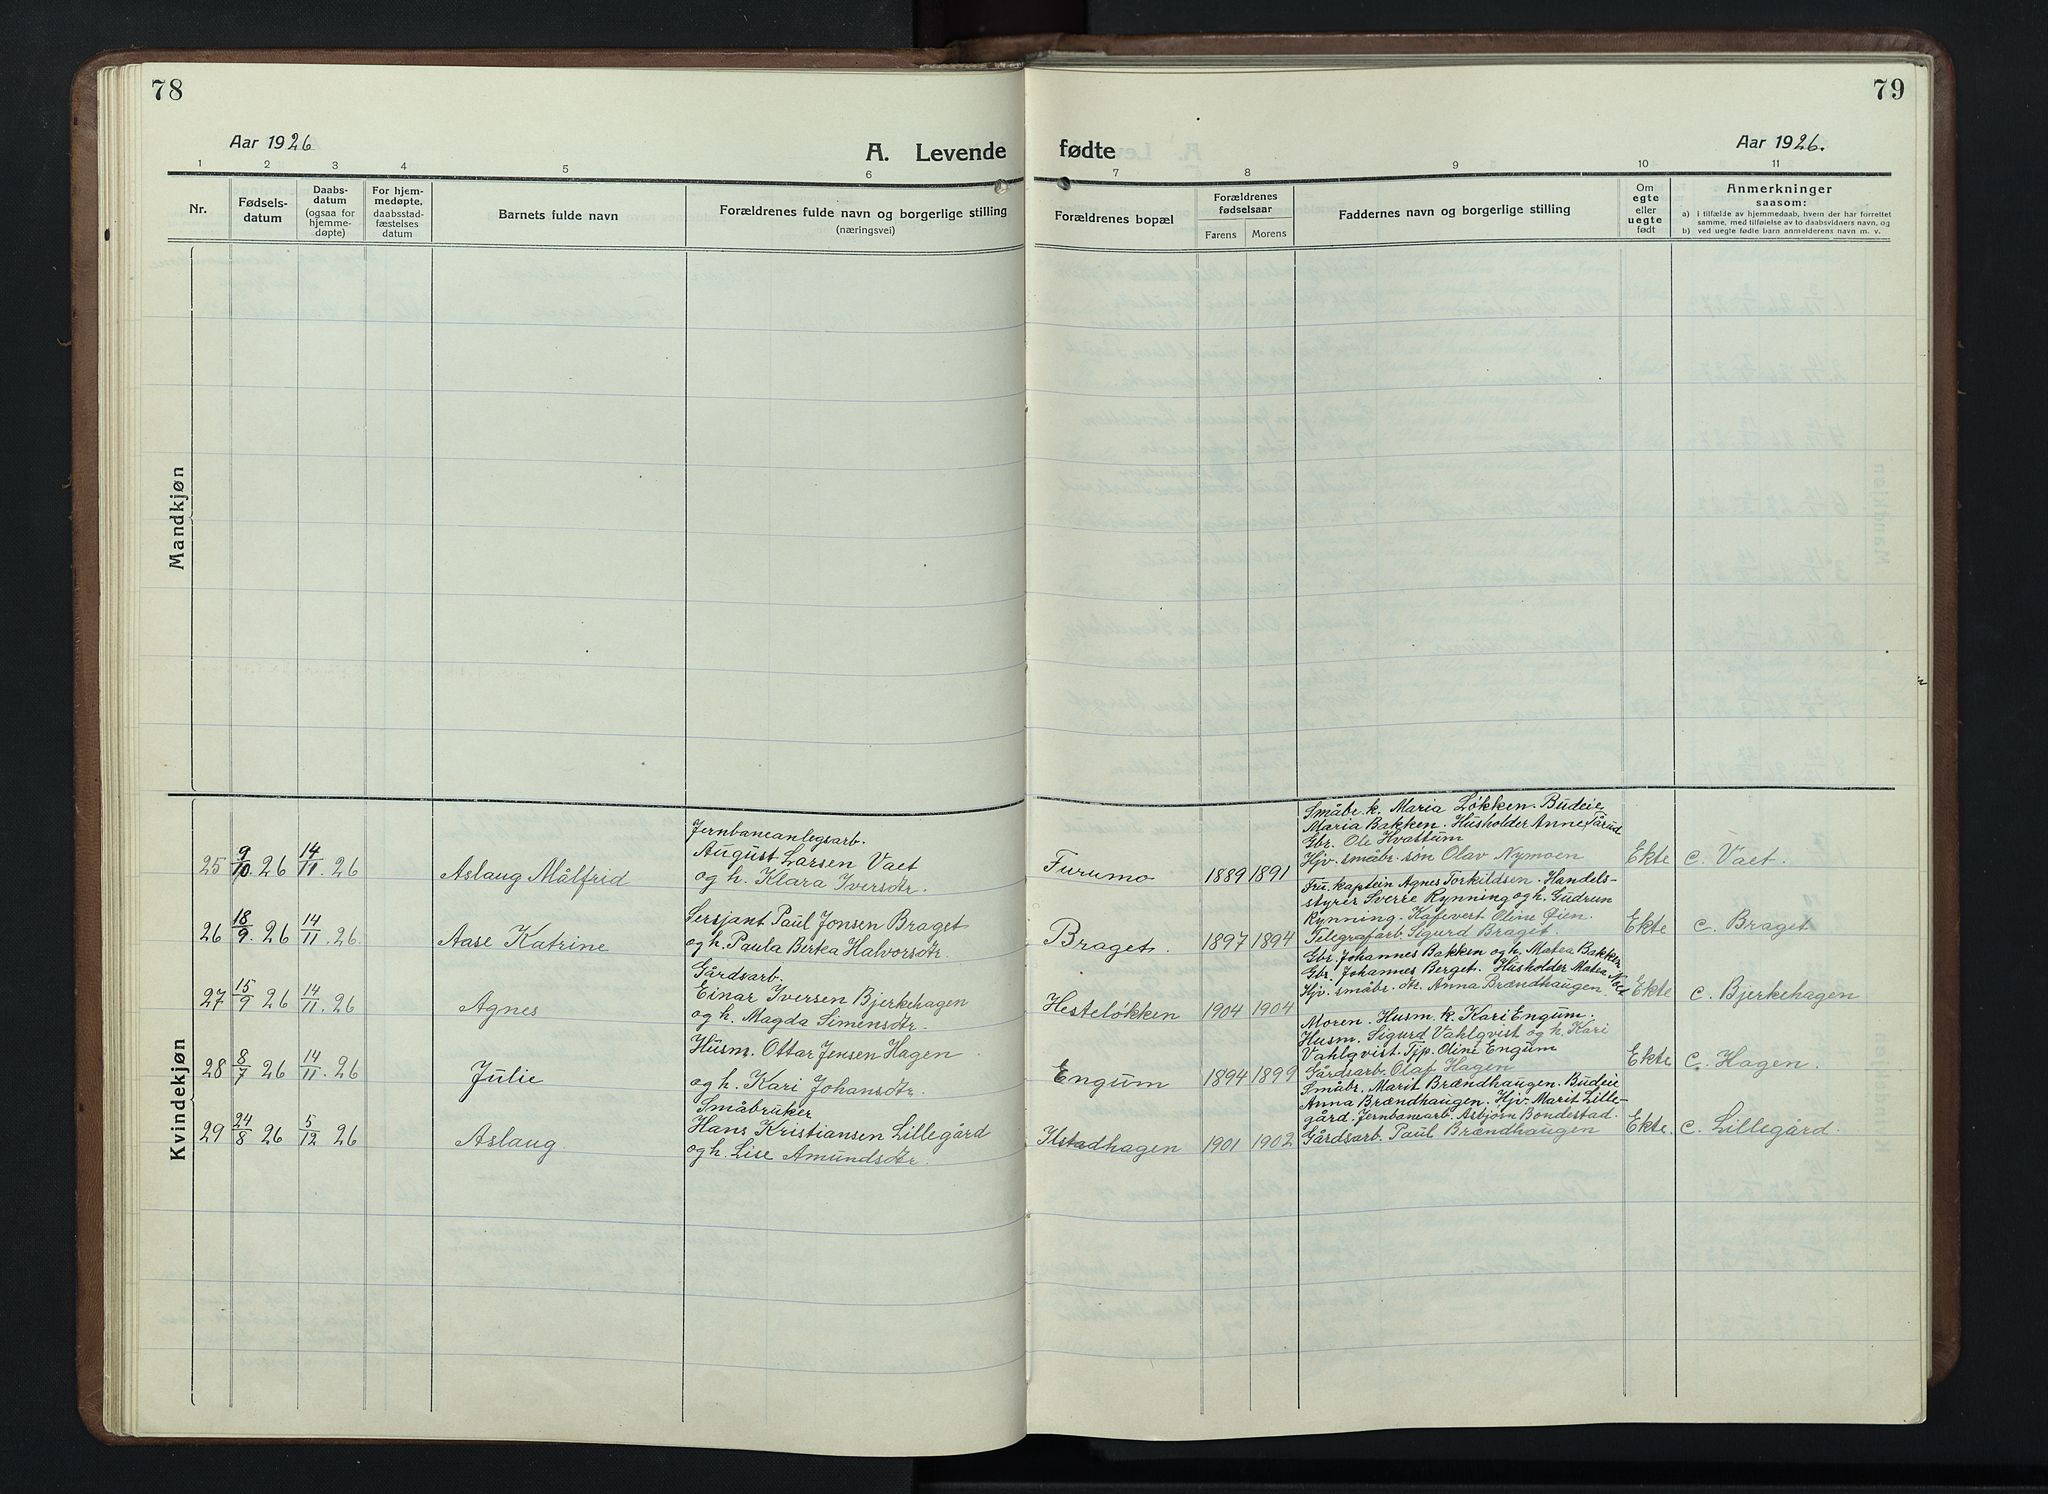 78
79
Aar 1926
A. Levende fødte
Aar 1926.
1 2 3 4 5 6 7 8 9 10 11
Nr.
Fødsels-
datum
Daabs-
datum
(ogsaa for
hjemme-
døpte)
For hjem-
medøpte,
daabsstad-
fæstelses
datum
Barnets fulde navn
Forældrenes fulde navn og borgerlige stilling
(næringsvei)
Forældrenes bopæl
Forældrenes
fødselsaar
Farens Morens
Faddernes navn og borgerlige stilling
Om
egte
eller
uegte
født
Anmerkninger
saasom:
a) I tilfælde av hjemmedaab, hvem der har forrettet
samme, med tilføielse av to daabsvidners navn, og
b) ved uegte fødte barn anmelderens navn m. v.
Mandkjøn
Kvindekjøn
25 9/10 26 14/11 26
Aslaug Målfrid
Jernbaneanlegsarb.
August Larsen Vaet
og h. Klara Iversdtr.
Furumo
1889 1891
Småbr. k. Maria Løkken. Budeie
Maria Bakken. Husholder Anne Tårud
Gbr. Ole Kvattum
Hjv. småbr. søn Olav Nymoen
Ekte
c. Vaet.
26 18/9 26 14/11 26.
Aase Katrine
Sersjant Paul Jonsen Braget
og h. Paula Birka Halvorsdtr.
Braget.
1897 1894
Fru. kaptein Agnes Torkildsen. Handels-
styrer Sverre Rynning og h. Gudrun
Rynning. Kafevert Oline Øien.
Telegrafarb. Sigurd Braget.
Ekte
c. Braget
27 15/9 26 14/11 26
Agnes
Gårdsarb.
Einar Iversen Bjerkehagen
og h. Magda Simensdtr.
Hesteløkken
1904 1904
Gbr. Johannes Bakken og h. Matea Bakken
Gbr. Johannes Berget. Husholder Matea
Hjv. småbr. dtr. Anna Brændhaugen.
Ekte
c. Bjerkehagen
28 8/7 26 14/11 26
Julie
Husm. Ottar Jensen Hagen
og h. Kari Johansdtr.
Engum
1894 1899
Moren. Husm. k. Kari Engum.
Husm. Sigurd Vahlqvist og h. Kari
Vahlqvist. Tjp. Oline Engum
Gårdsarb. Olaf Hagen
Ekte
c. Hagen.
29 24/8 26 5/12 26
Aslaug.
Småbruker
Hans Kristiansen Lillegård
og h. Lise Amundsdtr.
Ilstadhagen
1901 1902
Småbr. Marit Brændhaugen. Budeie
Anna Brændhaugen. Hjv. Marit Lille-
gård. Jernbanearb. Asbjørn Bondestad.
Gårdsarb. Paul Brændhaugen
Ekte.
c. Lillegård.